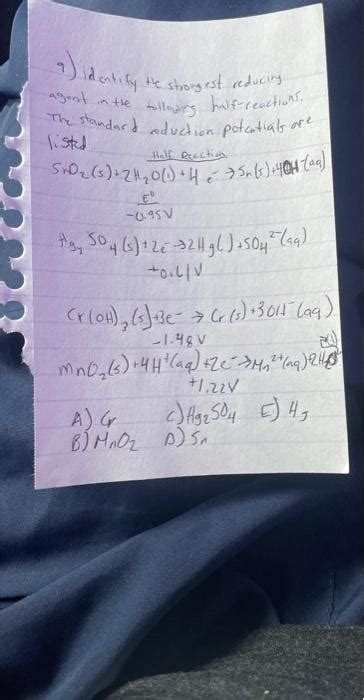 9) Identify the strongest reducing
agent in the following half-reactions.
The standard reduction potentials are
listed
Half Reaction
SnO₂(s)+2H₂O(l)+4 e⁻→Sn(s)+4OH⁻(aq)
E°
-0.95V
Hg₂SO₄(s)+2e⁻→2Hg()+SO₄²⁻(aq)
+0.61V
Cr(OH)₃(s)+3e⁻→Cr(s)+3OH⁻(aq)
-1.48V
MnO₂(s)+4H⁺(aq)+2e⁻→Mn²⁺(aq)+2H₂O(l)
+1.22V
A) Cr C) Hg₂SO₄ E) Hg
B) MnO₂ D) Sn